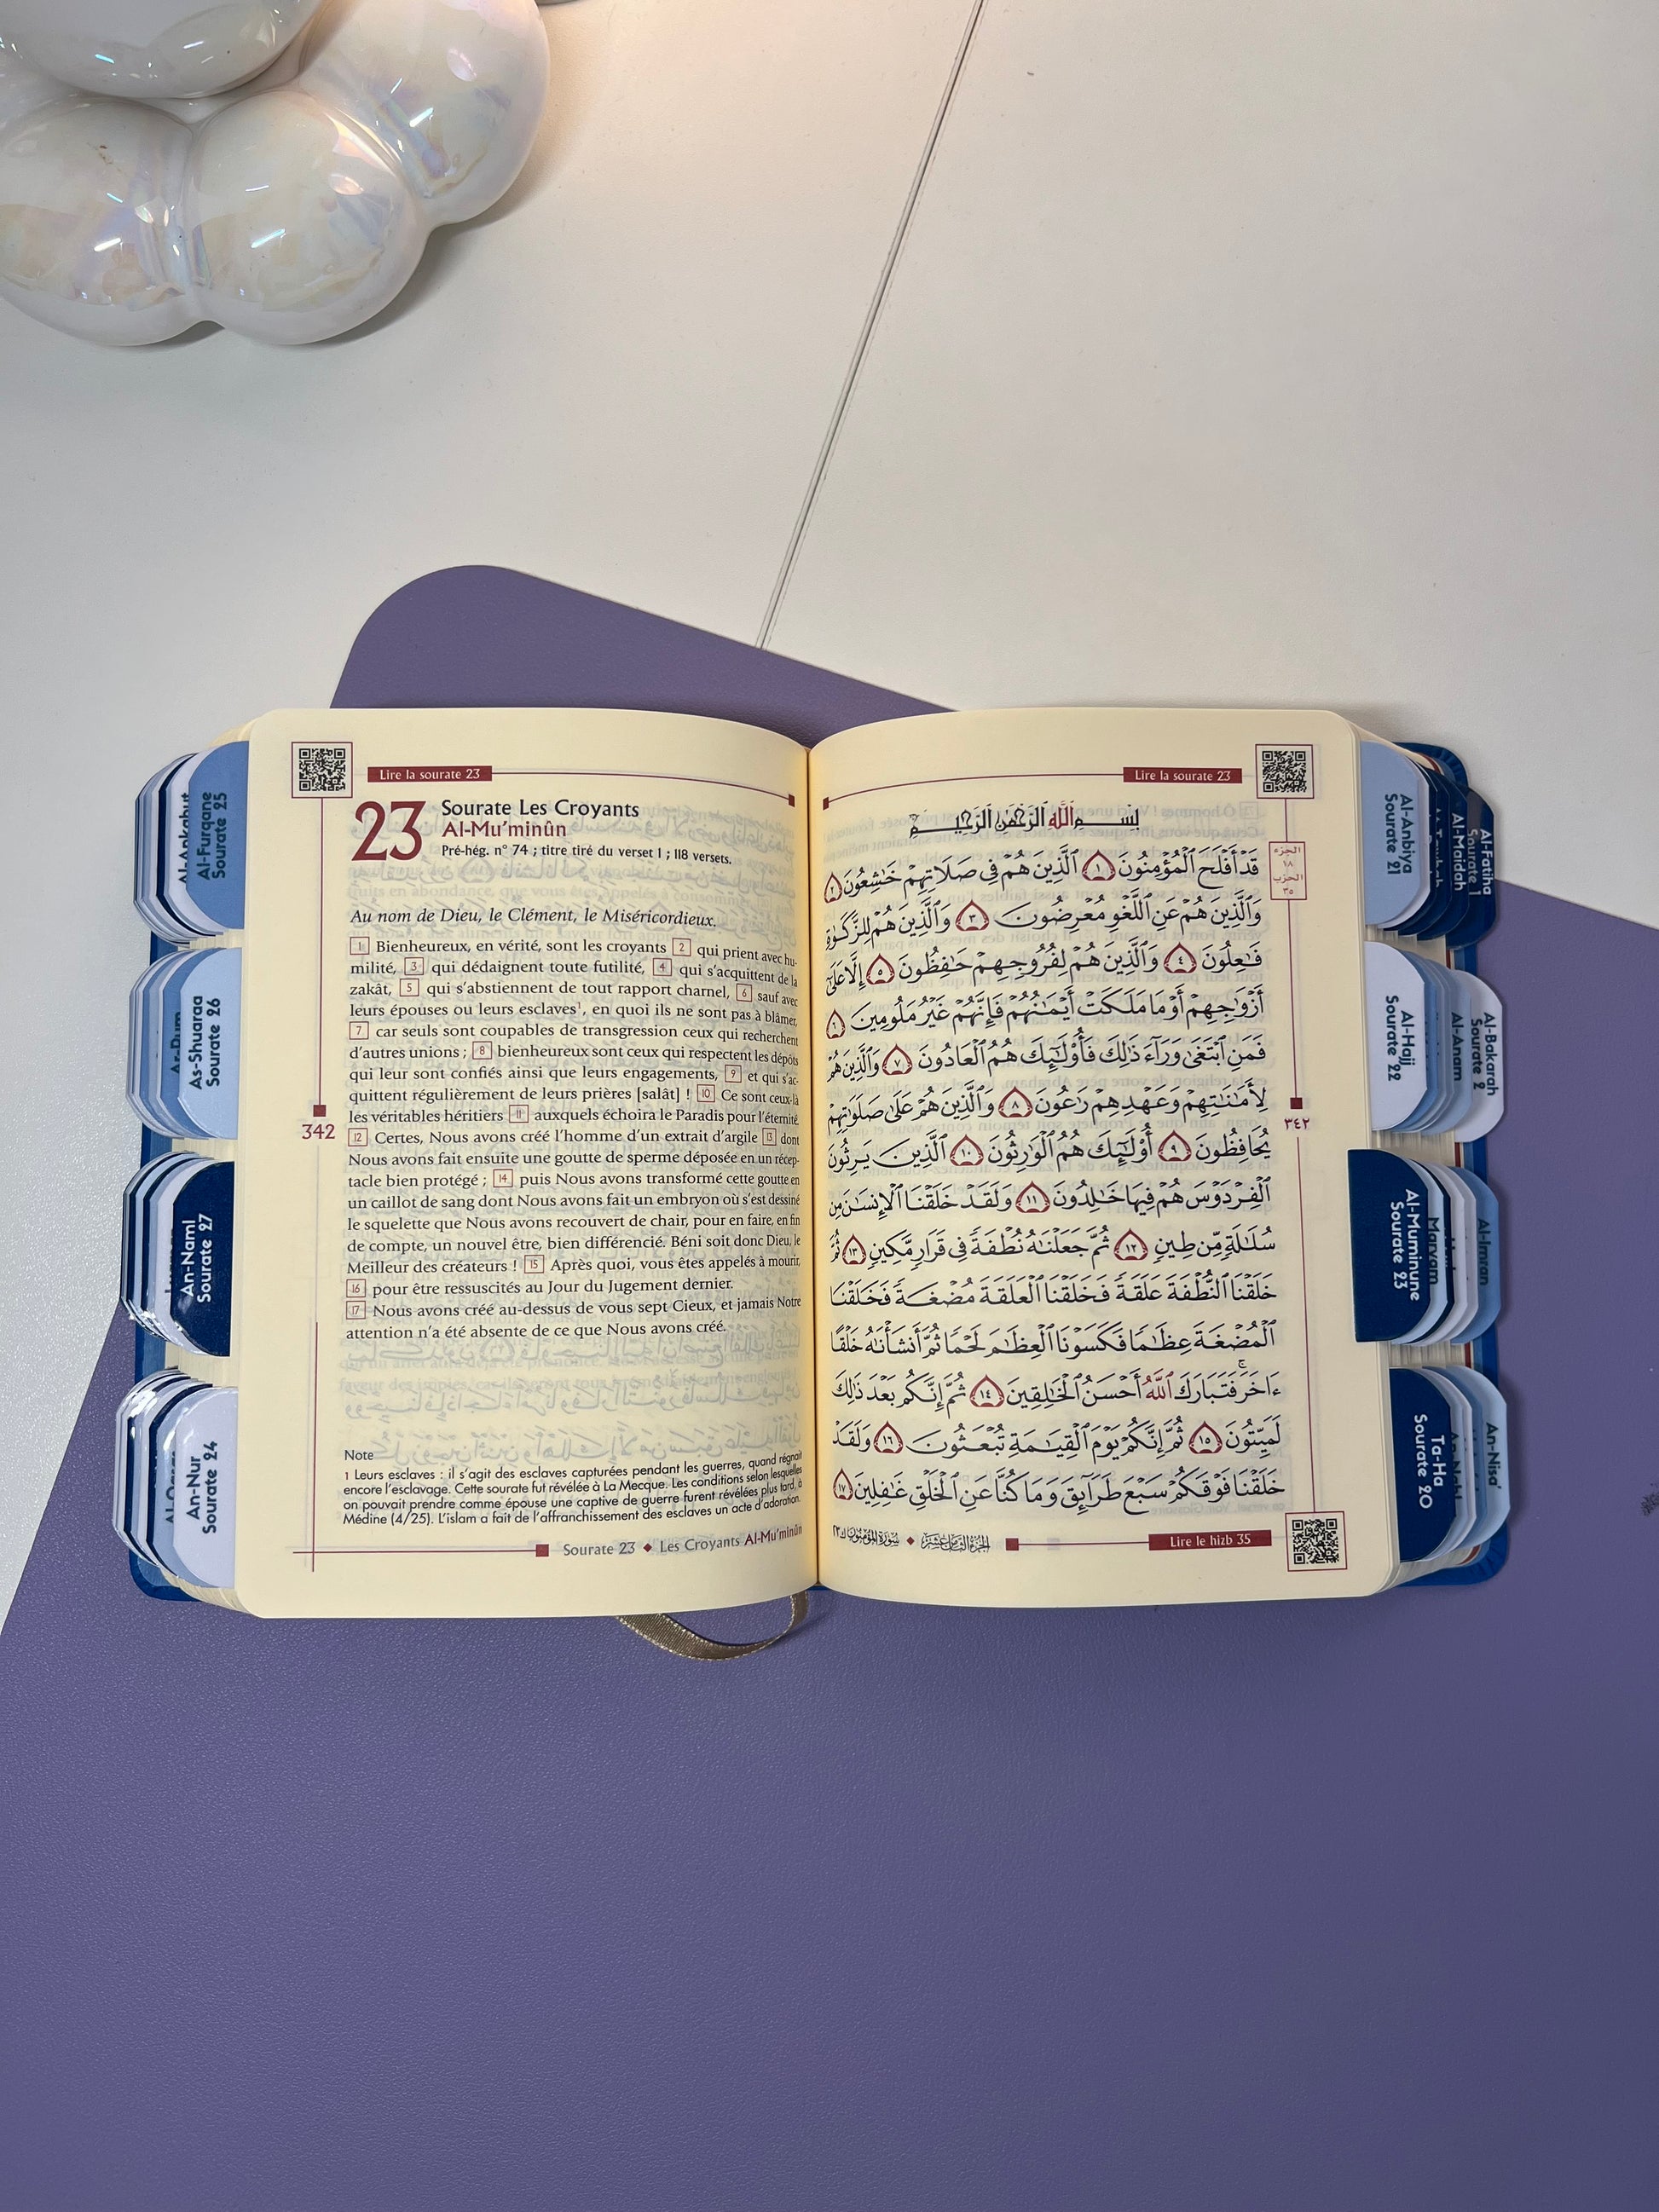 Lire la sourate 23
23
Sourate Les Croyants
Al-Mu’minûn
Pré-hég. n° 74 ; titre tiré du verset 1 ; 118 versets.
Au nom de Dieu, le Clément, le Miséricordieux.
1 Bienheureux, en vérité, sont les croyants 2 qui prient avec hu-
milité, 3 qui dédaignent toute futilité, 4 qui s’acquittent de la
zakât, 5 qui s’abstiennent de tout rapport charnel, 6 sauf avec
leurs épouses ou leurs esclaves¹, en quoi ils ne sont pas à blâmer,
7 car seuls sont coupables de transgression ceux qui recherchent
d’autres unions ; 8 bienheureux sont ceux qui respectent les dépôts
qui leur sont confiés ainsi que leurs engagements, 9 et qui s’ac-
quittent régulièrement de leurs prières [salât] ! 10 Ce sont ceux-là
les véritables héritiers 11 auxquels échoira le Paradis pour l’éternité.
12 Certes, Nous avons créé l’homme d’un extrait d’argile 13 dont
Nous avons fait ensuite une goutte de sperme déposée en un récep-
tacle bien protégé ; 14 puis Nous avons transformé cette goutte en
un caillot de sang dont Nous avons fait un embryon où s’est dessiné
le squelette que Nous avons recouvert de chair, pour en faire, en fin
de compte, un nouvel être, bien différencié. Béni soit donc Dieu, le
Meilleur des créateurs ! 15 Après quoi, vous êtes appelés à mourir,
16 pour être ressuscités au Jour du Jugement dernier.
17 Nous avons créé au-dessus de vous sept Cieux, et jamais Notre
attention n’a été absente de ce que Nous avons créé.
342
Note
1 Leurs esclaves : il s’agit des esclaves capturées pendant les guerres, quand régnait
encore l’esclavage. Cette sourate fut révélée à La Mecque. Les conditions selon lesquelles
on pouvait prendre comme épouse une captive de guerre furent révélées plus tard, à
Médine (4/25). L’islam a fait de l’affranchissement des esclaves un acte d’adoration.
Sourate 23 ◆ Les Croyants Al-Mu’minûn
Lire la sourate 23
بِسْمِ اللَّهِ الرَّحْمَٰنِ الرَّحِيمِ
قَدْ أَفْلَحَ الْمُؤْمِنُونَ ١ الَّذِينَ هُمْ فِي صَلَاتِهِمْ خَٰشِعُونَ ٢
وَالَّذِينَ هُمْ عَنِ اللَّغْوِ مُعْرِضُونَ ٣ وَالَّذِينَ هُمْ لِلزَّكَوٰةِ
فَٰعِلُونَ ٤ وَالَّذِينَ هُمْ لِفُرُوجِهِمْ حَٰفِظُونَ ٥ إِلَّا عَلَىٰ
أَزْوَٰجِهِمْ أَوْ مَا مَلَكَتْ أَيْمَٰنُهُمْ فَإِنَّهُمْ غَيْرُ مَلُومِينَ ٦
فَمَنِ ابْتَغَىٰ وَرَآءَ ذَٰلِكَ فَأُو۟لَٰٓئِكَ هُمُ الْعَادُونَ ٧ وَالَّذِينَ هُمْ
لِأَمَٰنَٰتِهِمْ وَعَهْدِهِمْ رَٰعُونَ ٨ وَالَّذِينَ هُمْ عَلَىٰ صَلَوَٰتِهِمْ
يُحَافِظُونَ ٩ أُو۟لَٰٓئِكَ هُمُ الْوَٰرِثُونَ ١٠ الَّذِينَ يَرِثُونَ
الْفِرْدَوْسَ هُمْ فِيهَا خَٰلِدُونَ ١١ وَلَقَدْ خَلَقْنَا الْإِنسَٰنَ مِن
سُلَٰلَةٍ مِّن طِينٍ ١٢ ثُمَّ جَعَلْنَٰهُ نُطْفَةً فِي قَرَارٍ مَّكِينٍ ١٣ ثُمَّ
خَلَقْنَا النُّطْفَةَ عَلَقَةً فَخَلَقْنَا الْعَلَقَةَ مُضْغَةً فَخَلَقْنَا
الْمُضْغَةَ عِظَٰمًا فَكَسَوْنَا الْعِظَٰمَ لَحْمًا ثُمَّ أَنشَأْنَٰهُ خَلْقًا
ءَاخَرَ ۚ فَتَبَارَكَ اللَّهُ أَحْسَنُ الْخَٰلِقِينَ ١٤ ثُمَّ إِنَّكُم بَعْدَ ذَٰلِكَ
لَمَيِّتُونَ ١٥ ثُمَّ إِنَّكُمْ يَوْمَ الْقِيَٰمَةِ تُبْعَثُونَ ١٦ وَلَقَدْ
خَلَقْنَا فَوْقَكُمْ سَبْعَ طَرَآئِقَ وَمَا كُنَّا عَنِ الْخَلْقِ غَٰفِلِينَ ١٧
الجزء
١٨
الحزب
٣٥
٣٤٢
Lire le hizb 35
Al-Ankabut
Al-Furqane
Sourate 25
As-Shuaraa
Sourate 26
An-Naml
Sourate 27
An-Nur
Sourate 24
Al-Anbiya
Sourate 21
Al-Maidah
Al-Fatiha
Sourate 1
Al-Hajj
Sourate 22
Al-Anam
Al-Bakarah
Sourate 2
Al-Muminune
Sourate 23
Maryam
Al-Imran
Ta-Ha
Sourate 20
An-Nisa’